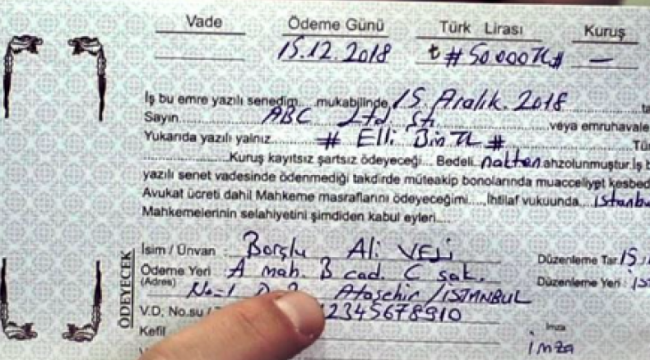 Vade Ödeme Günü Türk Lirası Kuruş
15.12.2018 ₺ #50.000TL# —
İş bu emre yazılı senedim... mukabilinde 15. Aralık. 2018 ta
Sayın ABC Ltd. Şti. veya emruhavale
Yukarıda yazılı yalnız # Elli Bin TL # Tür
Kuruş kayıtsız şartsız ödeyeceği... Bedeli nakten ahzolunmuştur. İş b
yazılı senet vadesinde ödenmediği takdirde müteakip bonolarında muacceliyet kesbed
Avukat ücreti dahil Mahkeme masraflarını ödeyeceğimi..., İhtilaf vukuunda istanbu
Mahkemelerinin selahiyetini şimdiden kabul eyleri....
ÖDEYECEK
İsim / Ünvan : Borçlu Ali VELİ Düzenleme Tar. 15.
Ödeme Yeri : A mah. B cad. C sok. Düzenleme Yeri : İs
(Adres) No=1 Ataşehir/İSTANBUL
V.D. No.su / 12345678910 İmza
Kefil imza